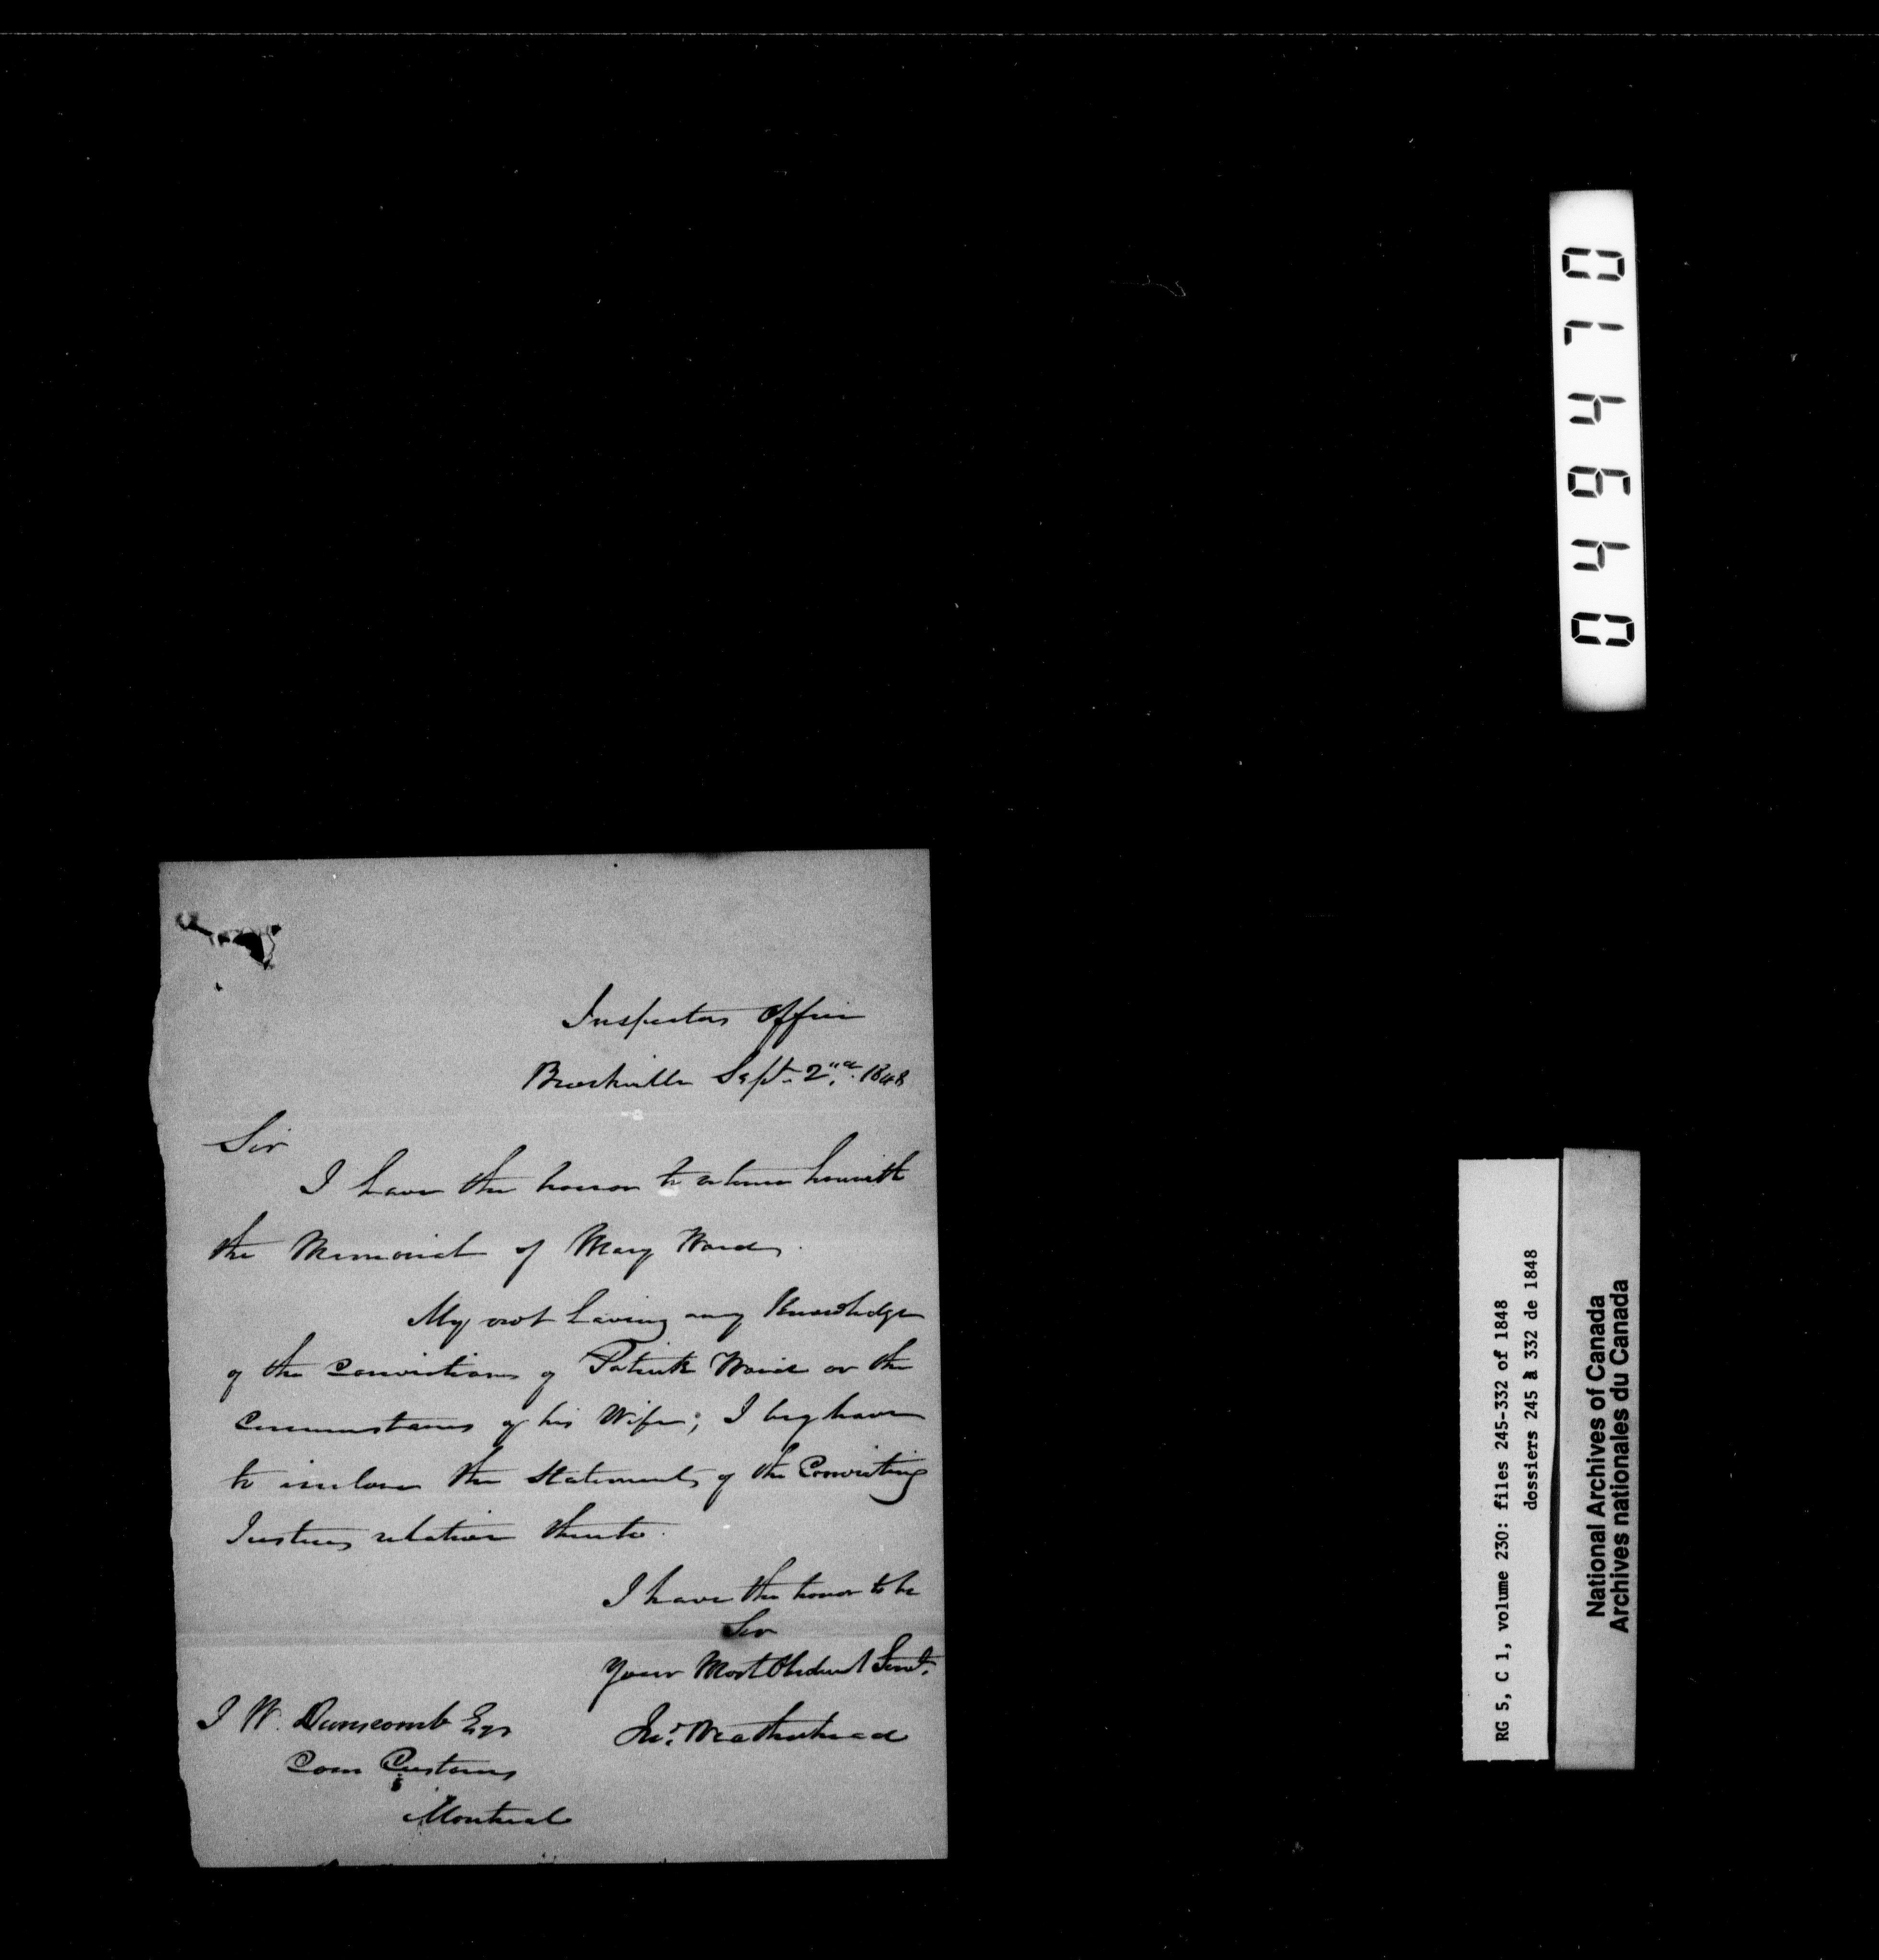 Inspectors Office
Brockville Sept. 2nd. 1848
Sir
I have the honor to return herewith
the Memorial of Mary Ward.
My not having any Knowledge
of the Convictions of Patrick Ward or the
Circumstances of his Wife; I beg leave
to inclose the Statements of the Convicting
Justices relative thereto.
I have the honor to be
Sir
Your Most Obedient Servt.
Jno. Weatherhead
J W. Dunscomb Esqr
Com Customs
Montreal
049410
RG 5, C 1, volume 230: files 245-332 of 1848
dossiers 245 à 332 de 1848
National Archives of Canada
Archives nationales du Canada